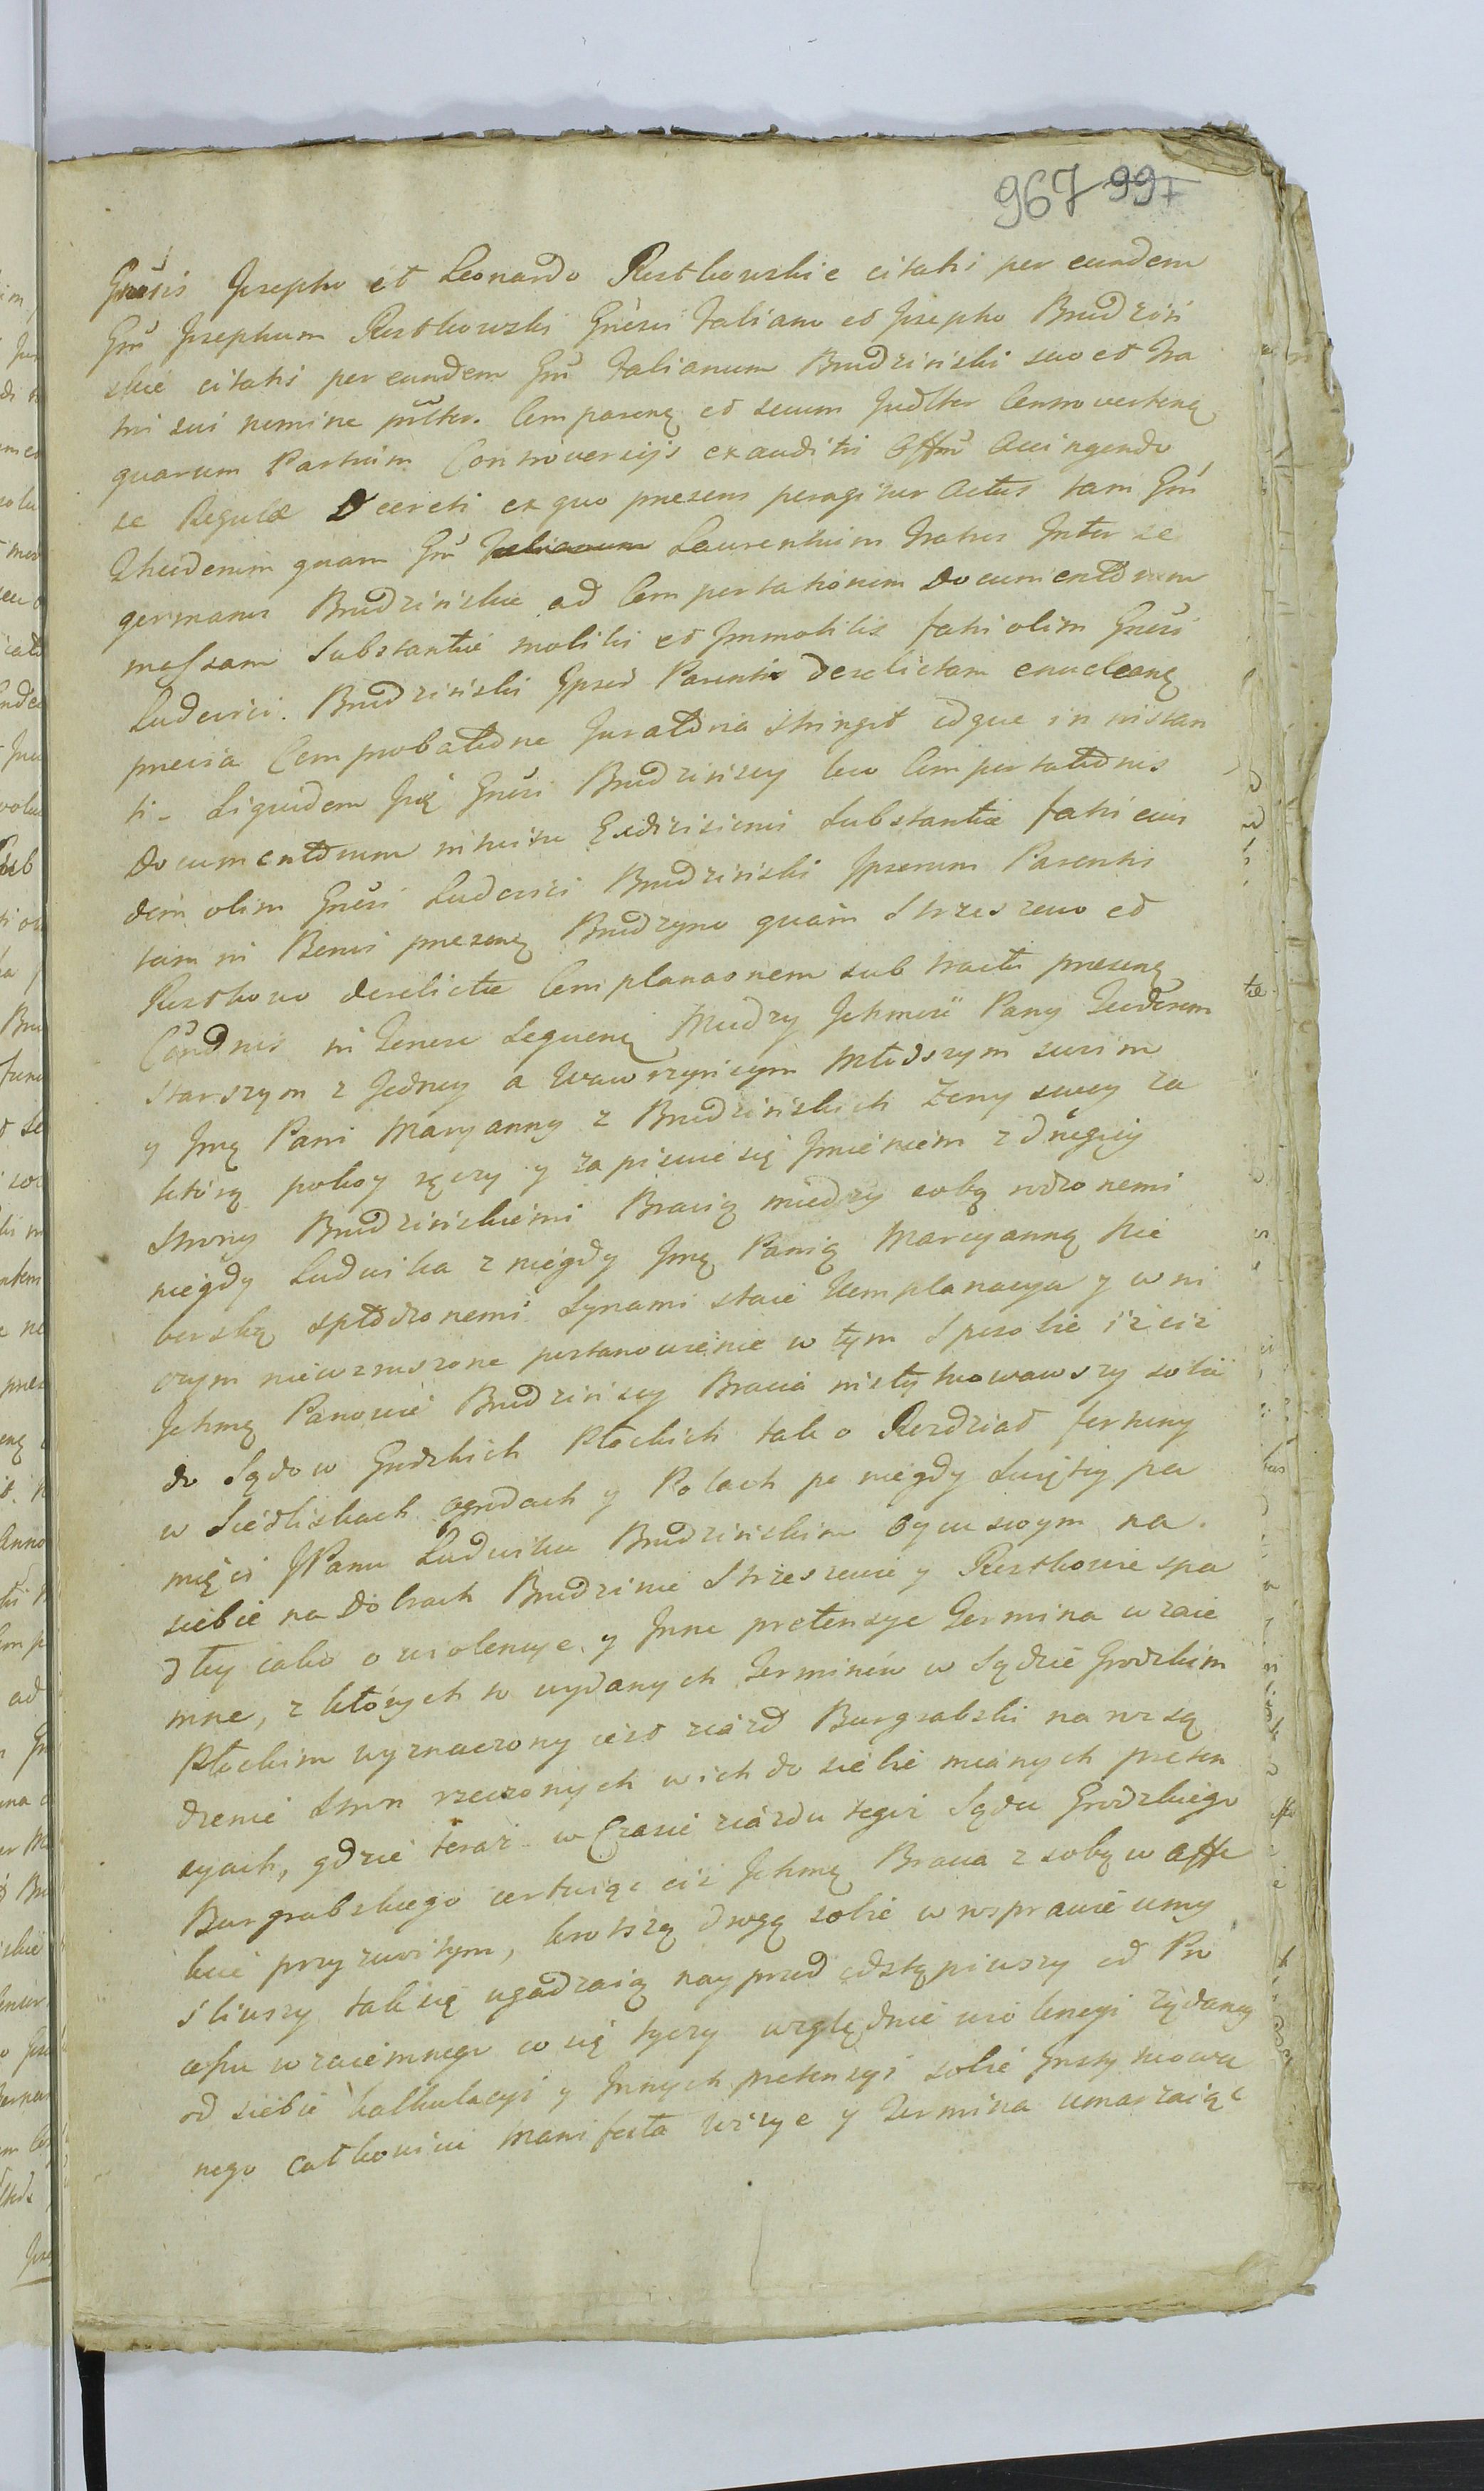 967 997
Gnosis Josepho et Leonardo Rostkowskie citatis per eundem
Gnu Josephum Rostkowski Gnesis Juliano et Josepho Brudziń
skie citatis per eundem Gnu Julianum Brudziński suo et Fra
tris sui nomine Comparenę et secum Judlter Controverteną
quarum Partium Controversijs exauditis Offm Accingendo
se Regulæ Decreti ex quo presens peragitur Actus tam Gnu
Thadeum quam Gnu Laurentium Fratres Inter se
germanos Brudzińskie ad Comportationem Documentorum
massam Substantiæ mobilis et Immobilis fati olim Gnesi
Ludovici Brudziński Ipsor Parentis derelictam enucleaną
previa Comprobatione Juratoria stringit idque in instan
ti. Siquidem Jię Gnesi Brudzińscy loco Comportationis
Documentorum intuitu Exdivisionis Substantiæ fati eius
dem olim Gnesi Ludovici Brudziński Ipsorum Parentis
tam in Bonis presenę Brudzyno quam Strzeszewo et
Rostkowo derelictæ Complanaonem sub tractu preseną
Condnis in Tenore Sequenę Między Ichmcii Pany Tadeuszem
Starszym z Jedney a Wawrzyńcem Młodszym swoim
y Jmę Pani Maryanny z Brudzińskich Żony swey za
którą pokoy ręczy y zapisuie się Imieniem z drugiey
Strony Brudzińskiemi Bracią między sobą rodzonemi
niegdy Ludwika z niegdy Jmę Panią Marcyanną Kie
berską spłodzonemi Synami staie Komplanacya y w ni
czym niewzruszone postanowienie w tym Sposobie iż ciż
Ichmę Panowie Brudzińscy Bracia instytuowawszy sobie
do Sądow Grodzkich Płockich tak o Rozdział fortuny
w Siedliskach ogrodach y Polach po niegdy Swiętey pa
mięci JPanu Ludwiku Brudzińskim Oycu swoym na
siebie na Dobrach Brudzinie Strzeszewie y Rostkowie spa
dłey iako o wiolencye y Inne pretensye Termina wzaie
mne, z których to wydanych Terminów w Sądzie Grodzkim
Płockim wyznaczony iest ziazd Burgrabski na rozsą
dzenie Stron rzeczonych w ich do siebie mianych preten
syach, gdzie teraz w Czasie ziazdu tegoż Sądu Grodzkiego
Burgrabskiego certuiąc ciż Ichmę Bracia z sobą w akcie
przyzwoitym, krotszą drogą sobie w rosprawie umy
śliwszy tak się ugadzaią nayprzod odstąpiwszy od Pro
cessu wzaiemnego co się tyczy względnie wiolencyi żądaney
od siebie kalkulacyi y Innych pretensyi sobie Instytuowa
nego całkowicie Manifesta Wizye y Termina umarzaiąc